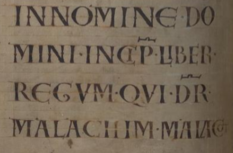 INNOMINE·DO
MINI·INCIP·LIBER·
REGVM·QVI·DR·
MALACHIM·MALAC